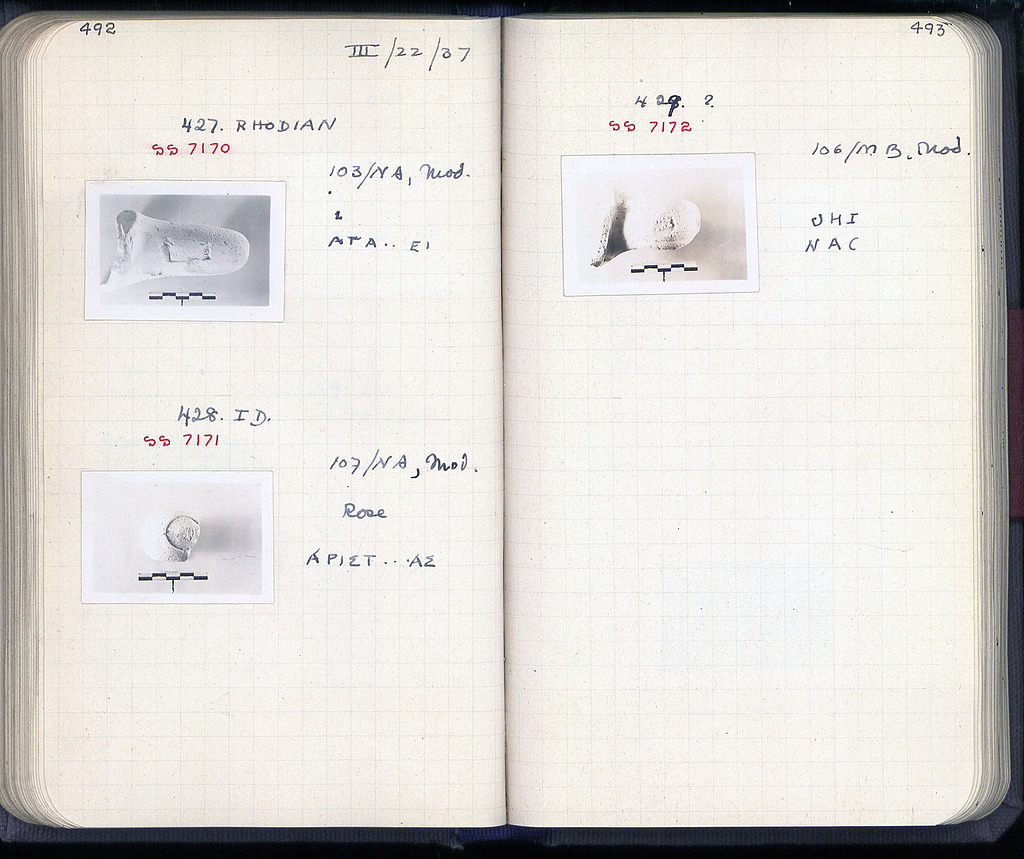 492
III/22/37
427. RHODIAN
SS 7170
103/NA, Mod.
ATA.. EI
428. ID.
SS 7171
107/NA, Mod.
Rose
ΑΡΙΣΤ...ΑΣ
493
429. ?
SS 7172
106/MB, Mod.
UHI
NAC